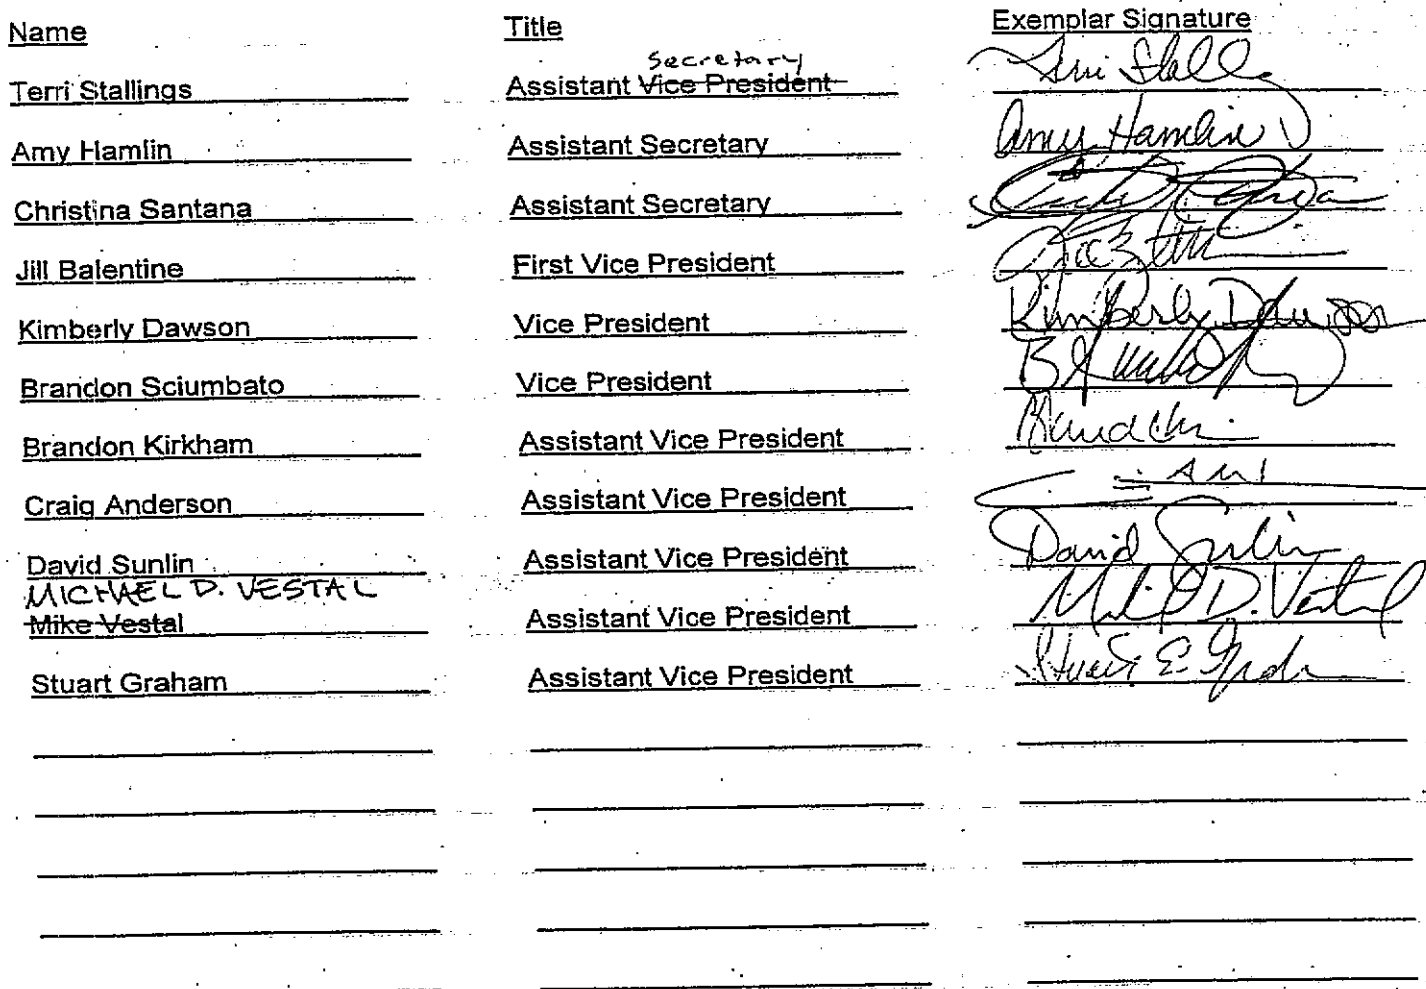 Name Title Exemplar Signature
Secretary
Terri Stallings Assistant Vice President Terri Stalls
Amy Hamlin Assistant Secretary Amy Hamlin
Christina Santana Assistant Secretary
Jill Balentine First Vice President
Kimberly Dawson Vice President Kimberly Dawson
Brandon Sciumbato Vice President
Brandon Kirkham Assistant Vice President
Craig Anderson Assistant Vice President
David Sunlin Assistant Vice President David Sunlin
MICHAEL D. VESTAL
Mike Vestal Assistant Vice President Michael D. Vestal
Stuart Graham Assistant Vice President Stuart E. Graham